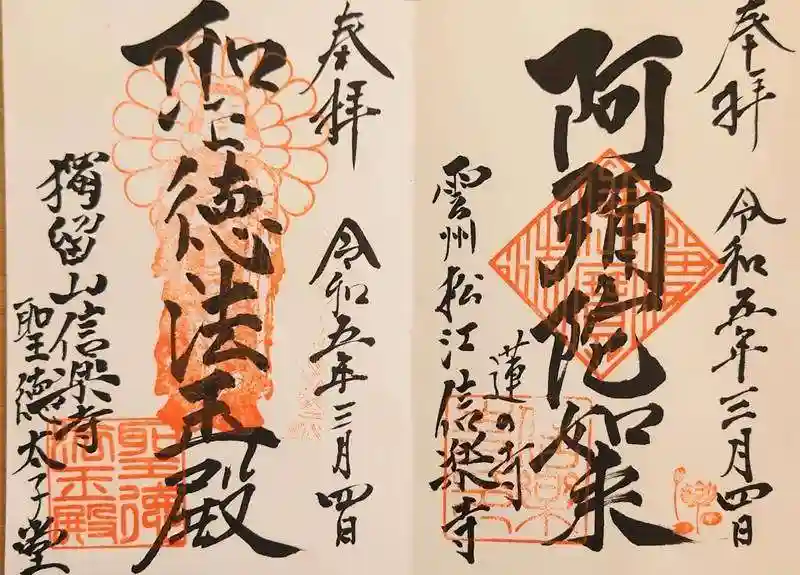 奉拝
令和五年三月四日
阿彌陀如来
蓮の寺
雲州松江信楽寺
奉拝
令和五年三月四日
聖徳法王殿
獨留山信楽寺
聖徳太子堂
聖徳
法王殿